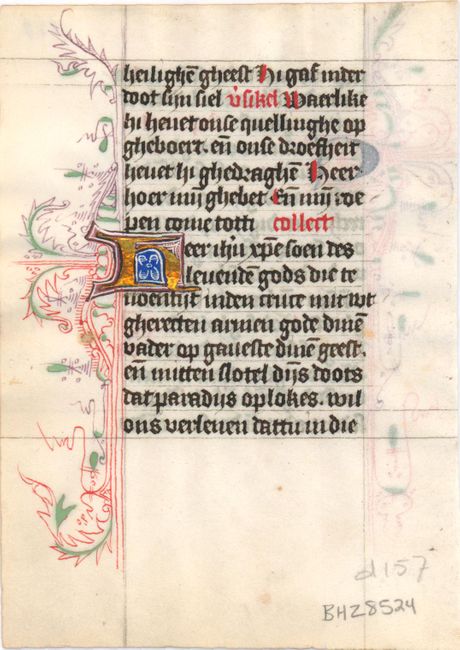 heilighē gheest Hi gaf inder
doot sijn siel v̄sikel Waerlike
hi heuet onse quellinghe op
gheboert. eñ onse droefheit
heuet hi ghedraghē Heer
hoer mijn ghebet Eñ mijn roe
pen come totti collect
Heer ihū xp̄e soen des
leuenden gods die te
none tijt inden cruce mit wt
gherecten armen gode dinē
vader op gaueste dinē geest.
eñ mitten slotel dijns doots
dat paradijs oplokes. wil
ons verleuen dattu in die
d157
BHZ8524